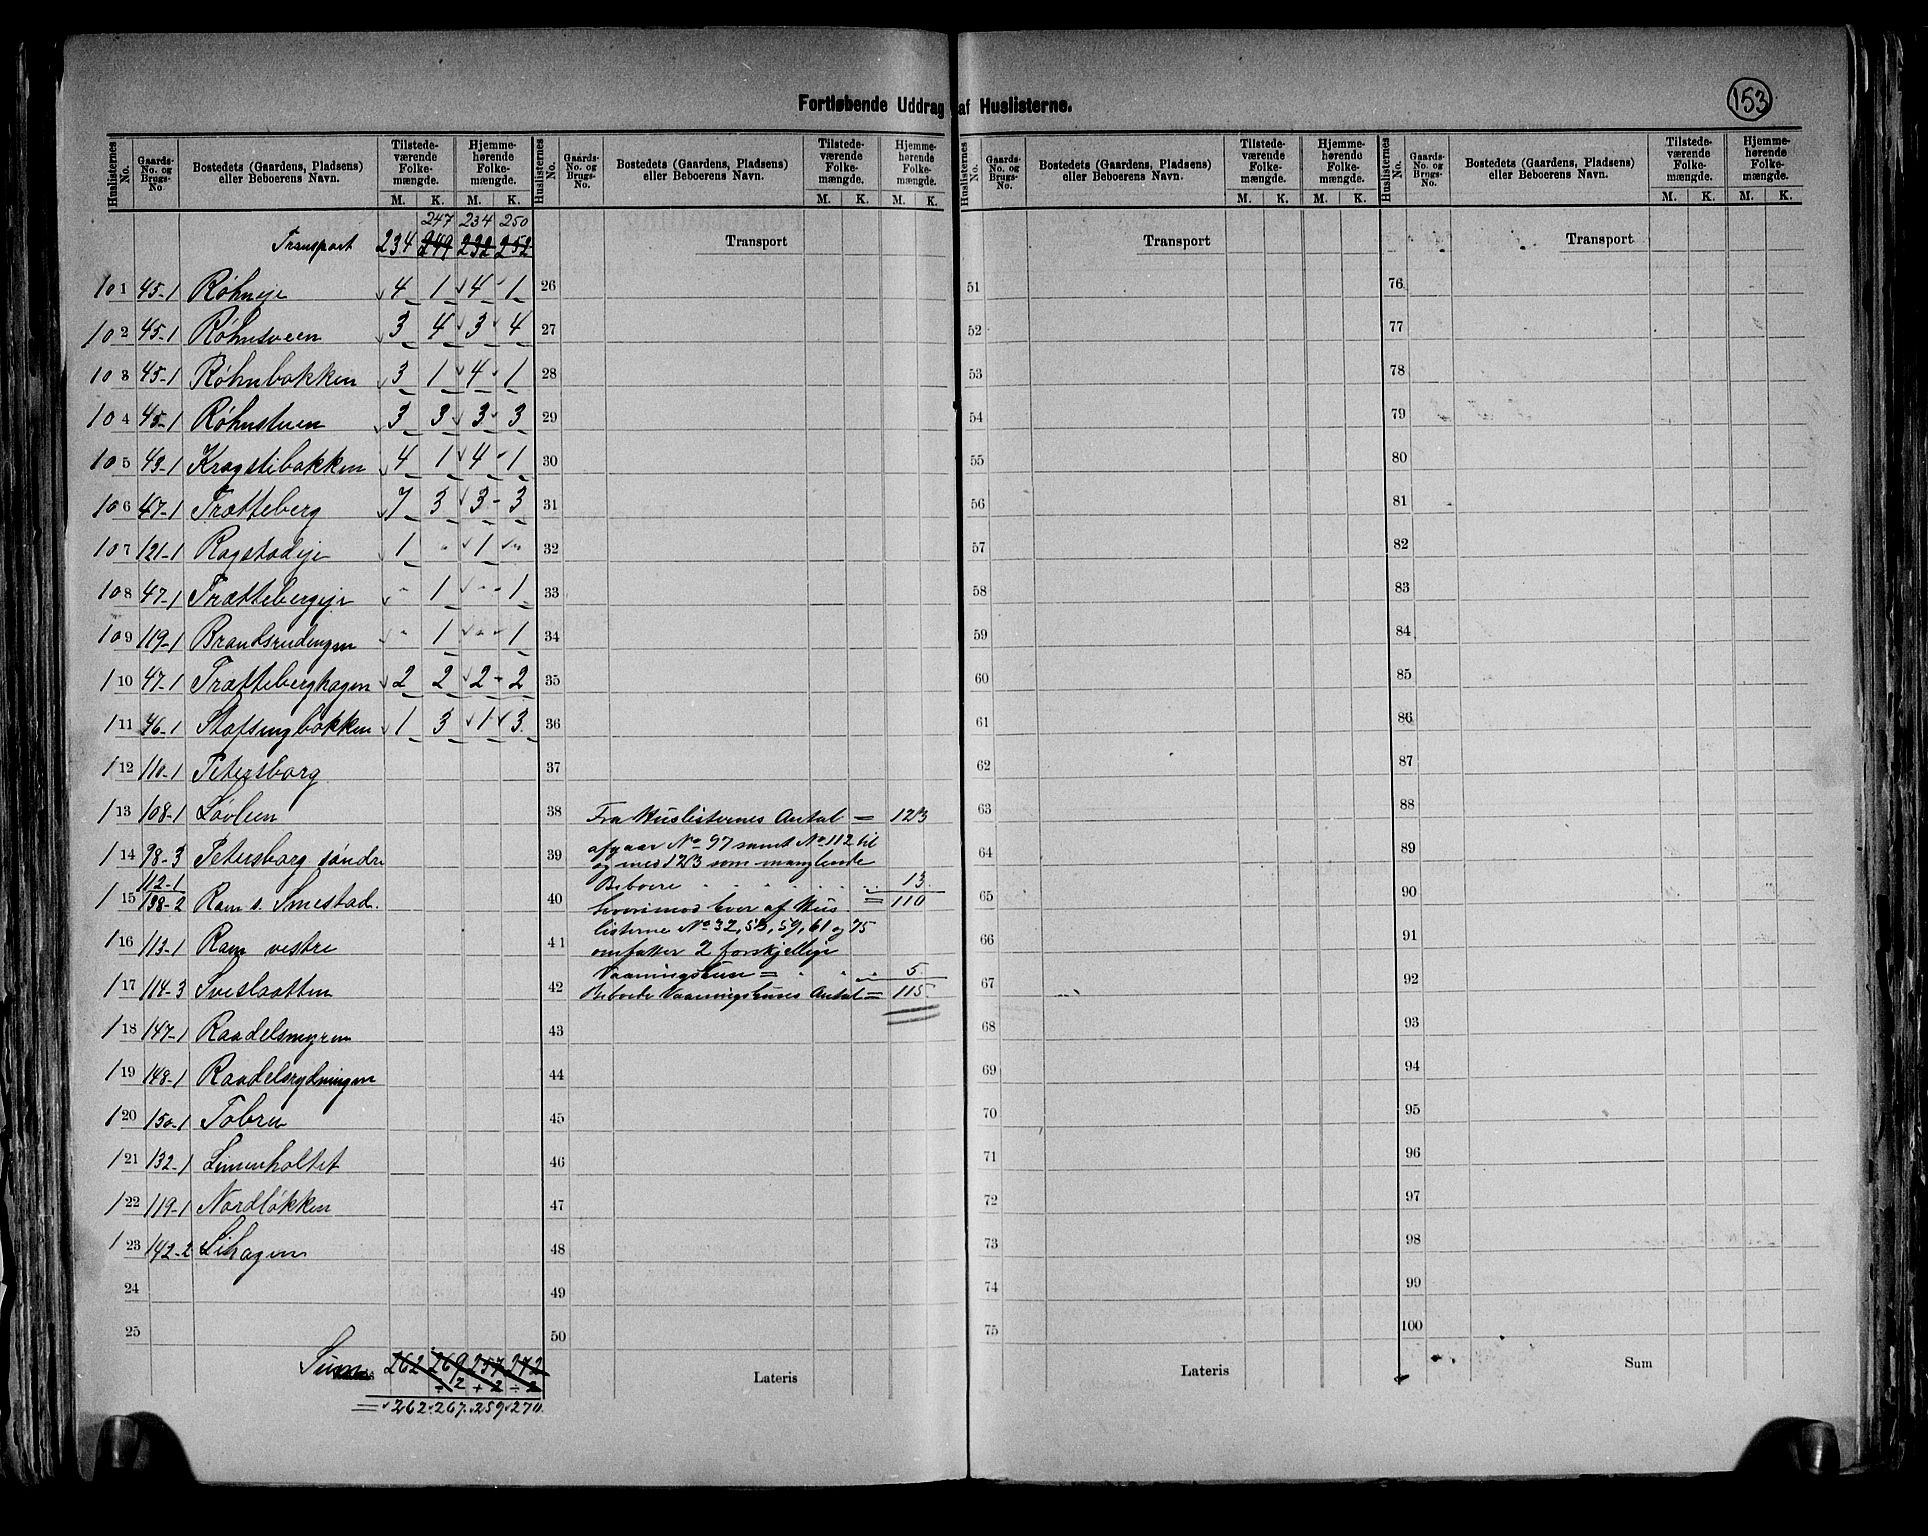 Fortløbende Uddrag af Huslisterne.
153
Huslisternes No. Gaards-No. og Brugs-No. Bostedets (Gaardens, Pladsens) eller Beboerens Navn. Tilstedeværende Folkemængde. M. K. Hjemmehørende Folkemængde. M. K.
Huslisternes No. Gaards-No. og Brugs-No. Bostedets (Gaardens, Pladsens) eller Beboerens Navn. Tilstedeværende Folkemængde. M. K. Hjemmehørende Folkemængde. M. K.
Huslisternes No. Gaards-No. og Brugs-No. Bostedets (Gaardens, Pladsens) eller Beboerens Navn. Tilstedeværende Folkemængde. M. K. Hjemmehørende Folkemængde. M. K.
Huslisternes No. Gaards-No. og Brugs-No. Bostedets (Gaardens, Pladsens) eller Beboerens Navn. Tilstedeværende Folkemængde. M. K. Hjemmehørende Folkemængde. M. K.
247 234 250
Transport 234 249 232 252 Transport Transport Transport
101 45-1 Røhneje 4 1 4 1 26 51 76
102 45-1 Røhnsveen 3 4 3 4 27 52 77
103 45-1 Røhnbakken 3 1 4 1 28 53 78
104 45-1 Røhnstuen 3 3 3 3 29 54 79
105 43-1 Kragstibakken 4 1 4 1 30 55 80
106 47-1 Trætteberg 7 3 3 3 31 56 81
107 121-1 Ragstadeje 1 " 1 " 32 57 82
108 47-1 Trættebergeje " 1 " 1 33 58 83
109 119-1 Brandsrudengen " 1 " 1 34 59 84
110 47-1 Trætteberghagen 2 2 2 2 35 60 85
111 46-1 Stafsingbakken 1 3 1 3 36 61 86
112 110-1 Petersborg 37 62 87
113 108-1 Løvlien 38 Fra Huslisternes Antal = 123 63 88
114 98-3 Petersborg søndre 39 afgaar No 97 samt No 112 til
og med 123 som manglende 64 89
112-1 Beboere 13
115 138-2 Ram s. Smestad. 40 hvorimod hver af Hus = 110 65 90
listerne No 32, 53, 59, 61 og 75
116 113-1 Ram vestre 41 omfatter 2 forskjellige 66 91
Vaaningshuse = 5
117 114-3 Sveslaatten 42 Beboede Vaaningshuses Antal = 115 67 92
118 147-1 Raadelsmyren 43 68 93
119 148-1 Raadelsrydningen 44 69 94
120 150-1 Tobru 45 70 95
121 132-1 Limenholtet 46 71 96
122 119-1 Nordløkken 47 72 97
123 142-2 Lihagen 48 73 98
24 49 74 99
25 50 75 100
Sum 262 269 257 272 Lateris Lateris Sum
÷ 2 + 2 ÷ 2
= 262 267 259 270